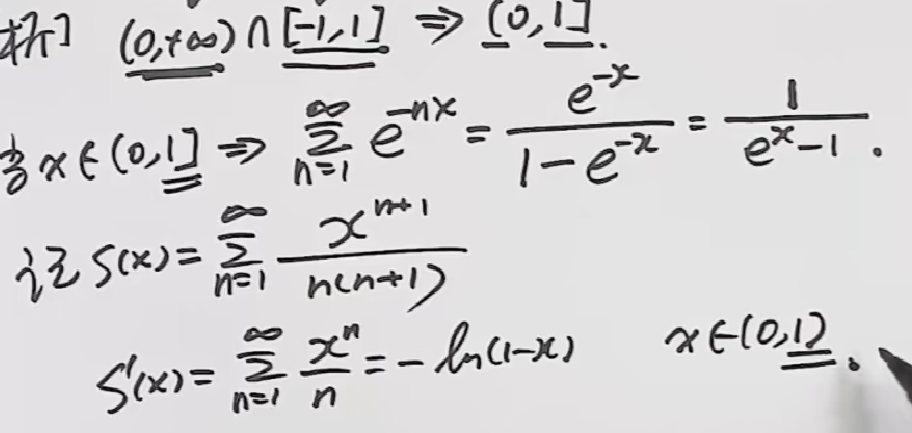 析] (0,+∞)∩[-1,1] ⇒ (0,1].
当 x∈(0,1] ⇒ ∑_{n=1}^{∞} e^{-nx} = \frac{e^{-x}}{1-e^{-x}} = \frac{1}{e^x-1}.
记 S(x)= ∑_{n=1}^{∞} \frac{x^{n+1}}{n(n+1)}
S'(x)= ∑_{n=1}^{∞} \frac{x^n}{n} = -ln(1-x) x∈(0,1).